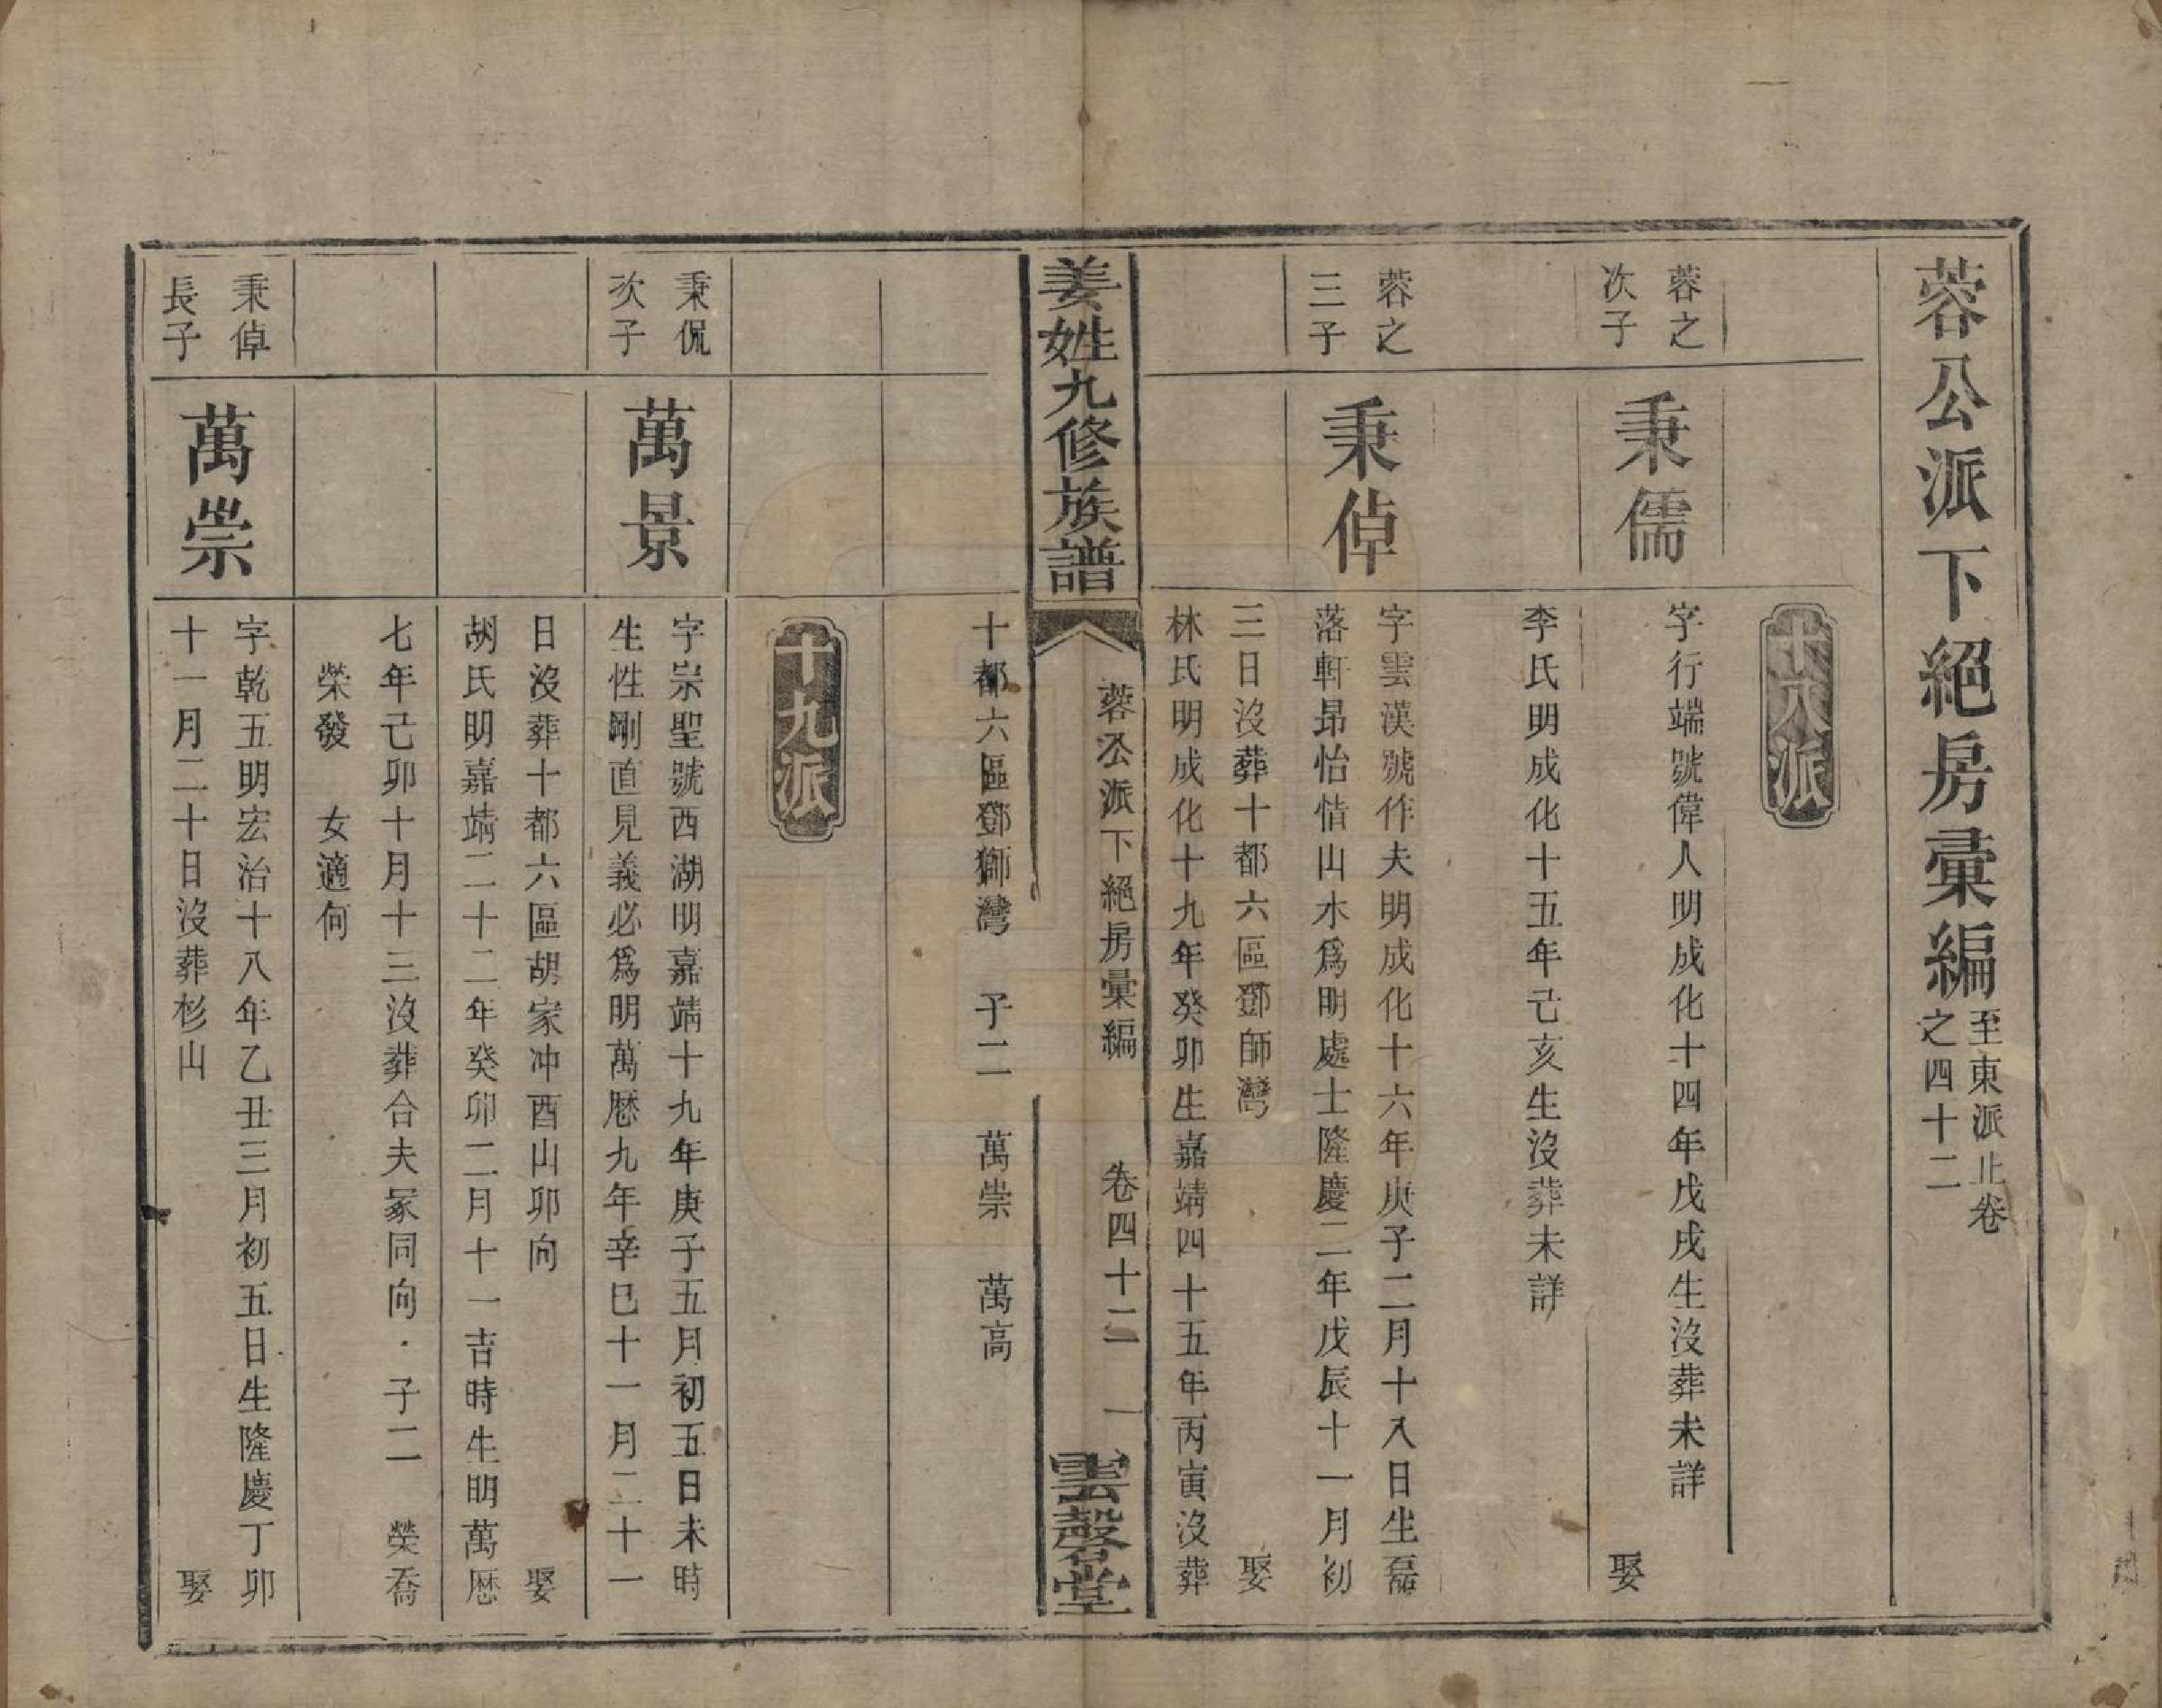 蓉公派下絕房彙編
至東派止卷
之四十二
十八派
蓉之
次子
秉儒
字行端號偉人明成化十四年戊戌生沒葬未詳
娶
李氏明成化十五年己亥生沒葬未詳
蓉之
三子
秉倬
字雲漢號作夫明成化十六年庚子二月十八日生磊
落軒昻怡情山水爲明處士隆慶二年戊辰十一月初
三日沒葬十都六區鄧師灣　娶
林氏明成化十九年癸卯生嘉靖四十五年丙寅沒葬
姜姓九修族譜
蓉公派下絕房彙編
卷四十二
一
雲磬堂
十都六區鄧獅灣　子二　萬崇　萬高
十九派
秉侃
次子
萬景
字崇聖號西湖明嘉靖十九年庚子五月初五日未時
生性剛直見義必爲明萬曆九年辛巳十一月二十一
日沒葬十都六區胡家冲酉山卯向　娶
胡氏明嘉靖二十二年癸卯二月十一吉時生明萬曆
七年己卯十月十三沒葬合夫冢同向．子二　榮喬
榮發　女適何
秉倬
長子
萬崇
字乾五明宏治十八年乙丑三月初五日生隆慶丁卯
十一月二十日沒葬杉山　娶